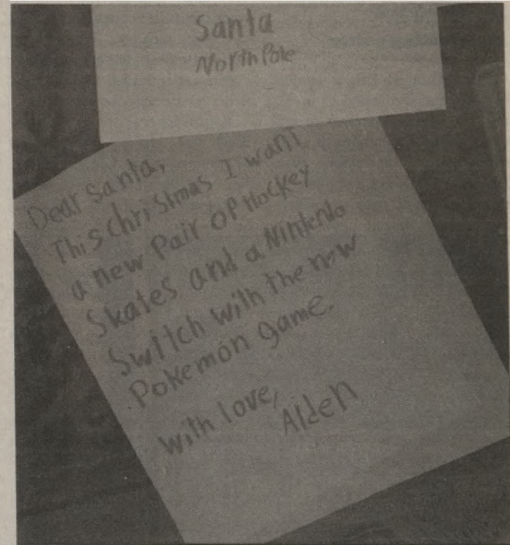 Santa
North Pole
Dear Santa,
This Christmas I want
a new Pair of Hockey
Skates and a Nintendo
Switch with the new
Pokemon game.
with love,
Aiden